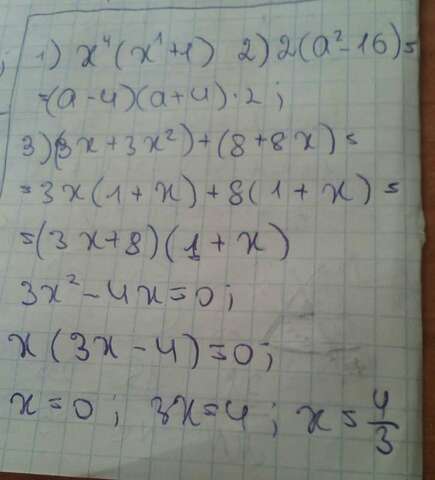 1) x⁴(x¹+1) 2) 2(a²-16)=
=(a-4)(a+4)·2;
3)(3x+3x²)+(8+8x)=
=3x(1+x)+8(1+x)=
=(3x+8)(1+x)
3x²-4x=0;
x(3x-4)=0;
x=0; 3x=4; x=4/3